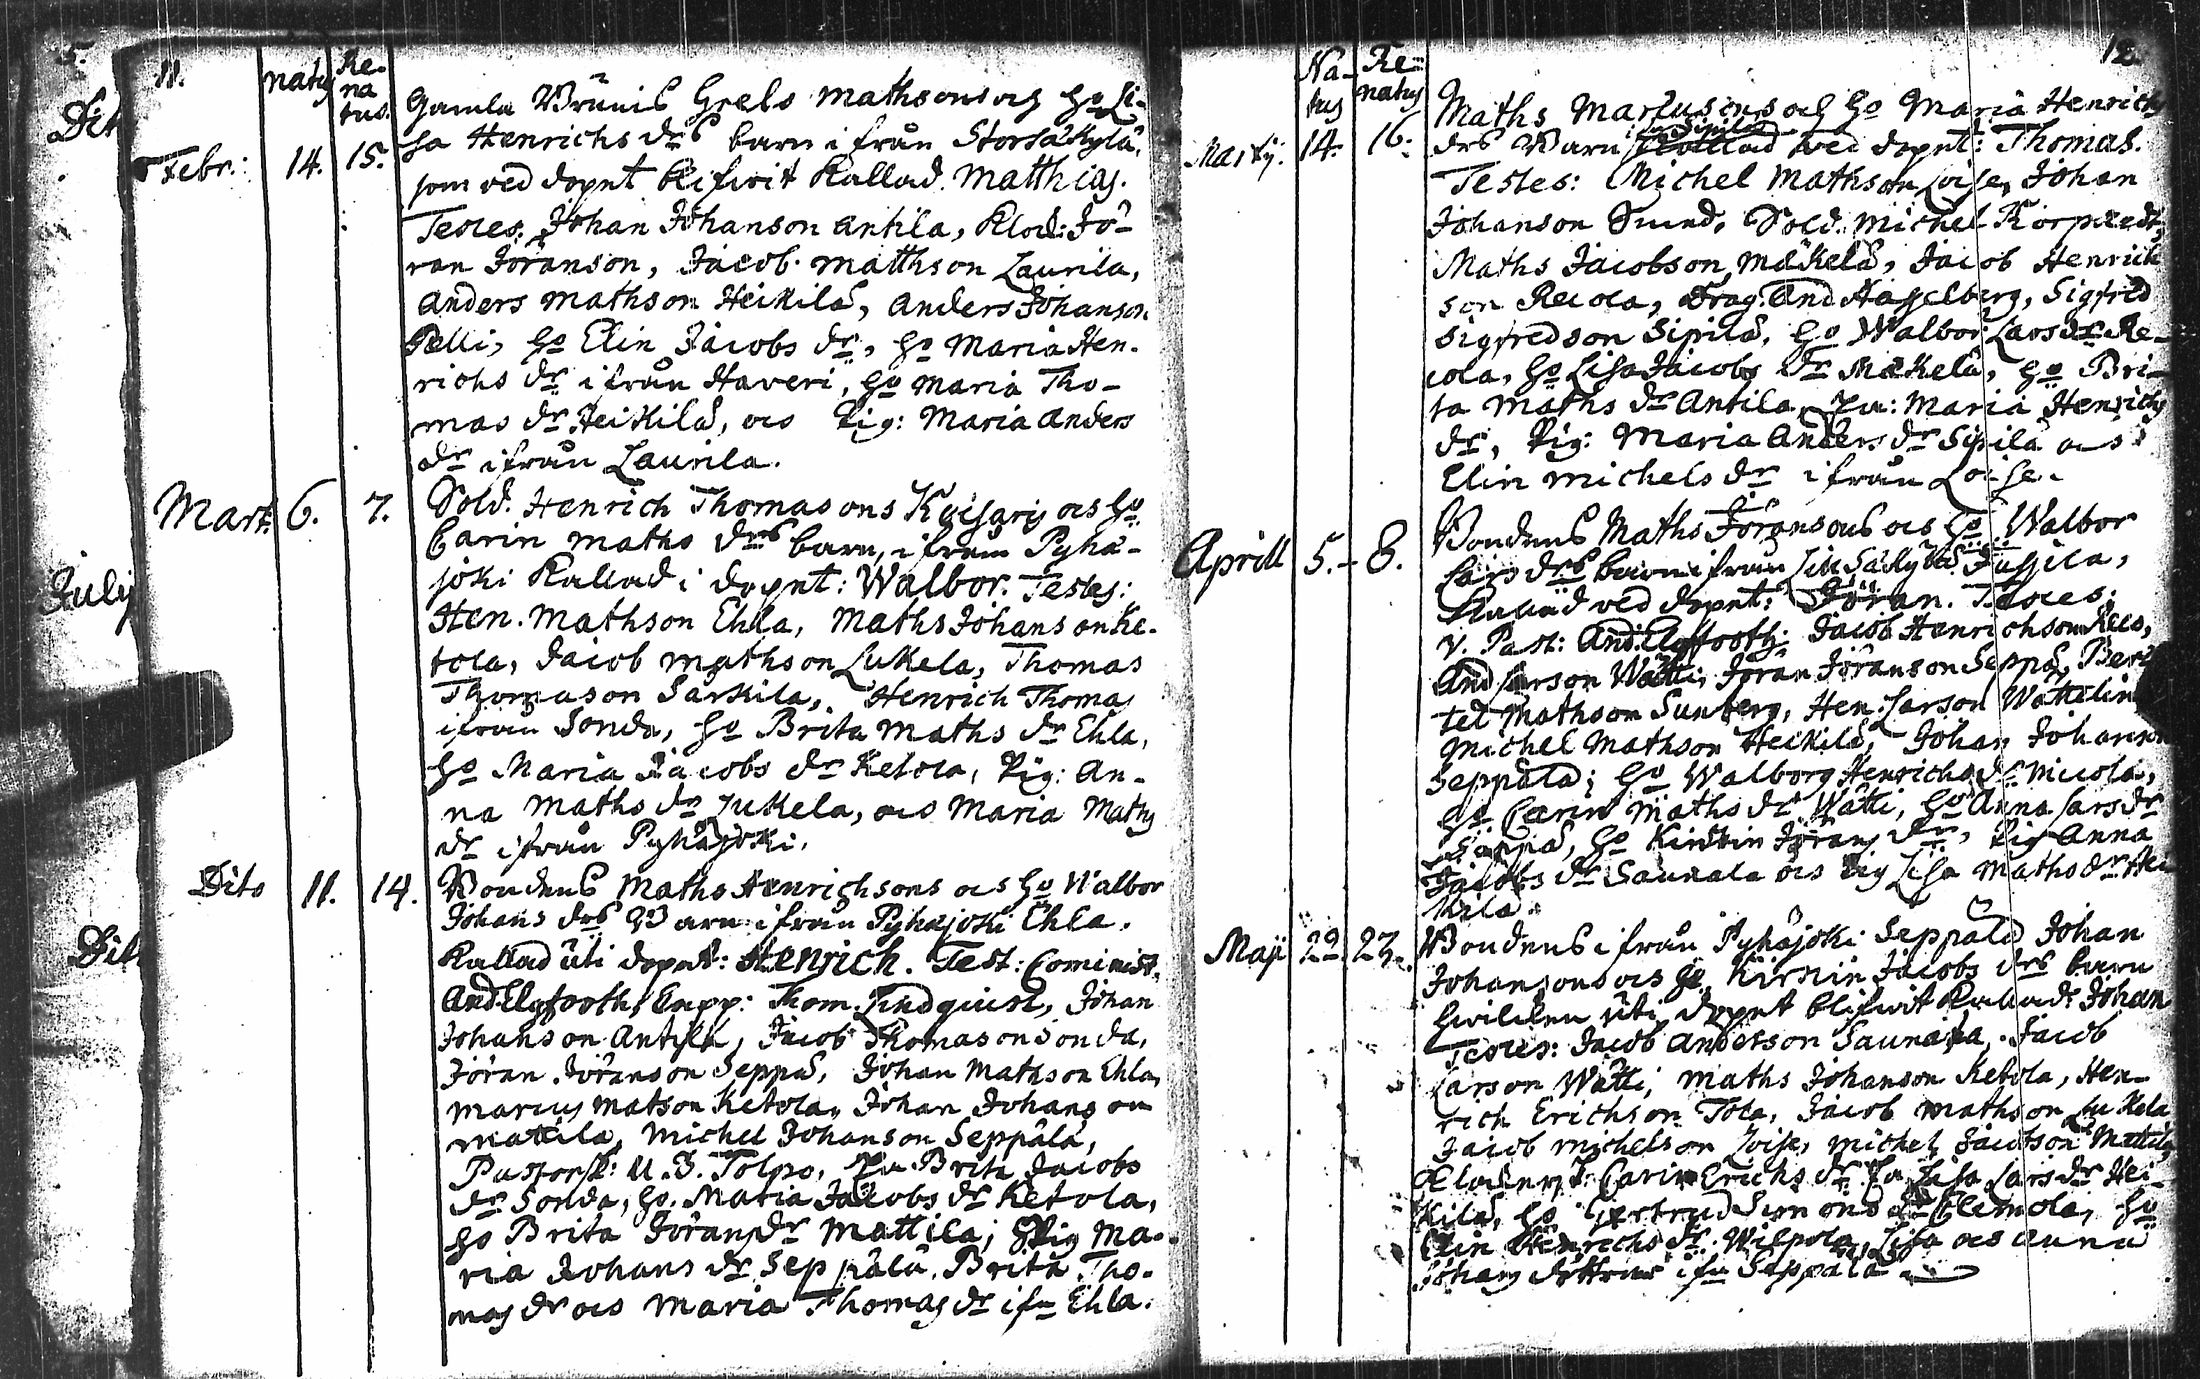 11.
natus
Re-
na
tus.
Gamla Bruuis Grels Mathsons och Ho Li-
sa Henrichs drs barn ifrån Storsäkylä,
Febr: 14. 15.
som ved dopnt blifwit kallad Matthias.
Testes: Johan Johanson Antila, Klock: Jö-
ran Jöranson, Jacob Matthson Laurila,
Anders Mathson Heikilä, Anders Johanson
Pelli, Ho Elin Jacobs dr, Ho Maria Hen-
richs dr ifrån Haveri, Ho Maria Tho-
mas dr Heikilä, ocs Pig: Maria Anders
dr ifrån Laurila.
Mart. 6. 7.
Sold. Henrich Thomasons ocs Ho
Carin Maths drs barn, ifrån Pyhä-
joki Kallad i dopnt: Walbor. Testes:
Hen. Mathson Ehla, Maths Johanson Ke-
tola, Jacob Mathson Lukela, Thomas
Thomason Sarkila, Henrich Thomas
ifrån Sonda, Ho Brita Maths dr Ehla,
Ho Maria Jacobs dr Ketola, Pig: An-
na Maths dr Lukela, ocs Maria Maths
dr ifrån Pyhäjoki.
Dito 11. 14.
Bondens Maths Henrichsons ocs Ho Walbor
Johans drs Barn ifrån Pyhäjoki Ehla.
Kallad uti dopnt: Henrich. Test: Cominist.
And: Elgfooth, Capp: Thom. Lindquist, Johan
Johanson Antila, Jacob Thomason Sonda,
Jöran Jöranson Seppä, Johan Mathson Ehla,
Marcus Matson Ketola, Johan Johanson
Mattila, Michel Johanson Seppälä,
Pastorsk: U. B. Tolpo, Brita Jacobs
dr Sonda, Ho. Maria Jacobs dr Ketola,
Ho Brita Jörans dr Mattila; Pig Ma-
ria Johans dr Seppälä, Brita Tho-
mas dr ocs Maria Thomas dr ifn Ehla.
12
Na-
tus
Re-
natus
Maths Marcusons och Ho Maria Henrichs
ifn Sipilä
Martij. 14. 16.
drs Barn Kallad ved dopnt: Thomas.
Testes: Michel Mathson Loise, Johan
Johanson Sund, Sold. Michel
Maths Jacobson Mäkelä, Jacob Henrich
son Recola, Drag. And Hasselberg, Sigfred
Sigfredson Sipilä, Ho Walbor Lars dr Re-
cola, Ho Lisa Jacobs dr Mäkelä, Ho Bri-
ta Maths dr Antila, Maria Henrichs
dr, Pig: Maria Anders dr Sipilä ocs
Elin Michels dr ifrån Loise.
Aprill 5. - 8.
Bondens Maths Jöransons ocs Ho Walbor
Lars drs barn ifrån Lill Säkylä Jussila,
Kallad ved dopnt: Jöran. Testes:
v. Past: And: Elgfooth, Jacob Henrichson
And Larson Wätti, Jöran Jöranson Seppä,
tel Mathson Sunberg, Hen: Larson
Michel Mathson Heikilä, Johan Johanson
Seppälä; Ho Walborg Henrichs dr
Ho Carin Maths dr Wätti, Ho Anna Lars dr
Seppä, Ho Kirstin Jörans dr, Pig Anna
Jacobs dr Saunala ocs Pig Lisa Maths dr Hei
kilä.
Maji 22. 23.
Bondens ifrån Pyhäjoki Seppälä Johan
Johansons ocs Ho Kirstin Jacobs drs barn
hvilcken uti dopnt blifwit Kallad: Johan
Testes: Jacob Anderson Saunala, Jacob
Larson Wätti, Maths Johanson Ketola, Hen-
rich Erichson Tola, Jacob Mathson Lukela
Jacob Michelson Loise, Michel Jacobson Mattila
Carin Erichs dr, Lisa Lars dr Hei-
kilä, Ho Gertrud Simons dr Clemola, Ho
Elin Henrichs dr Wilpola, Lisa ocs Anna
Johans döttrar ifn Seppälä
Dit
July
Dit